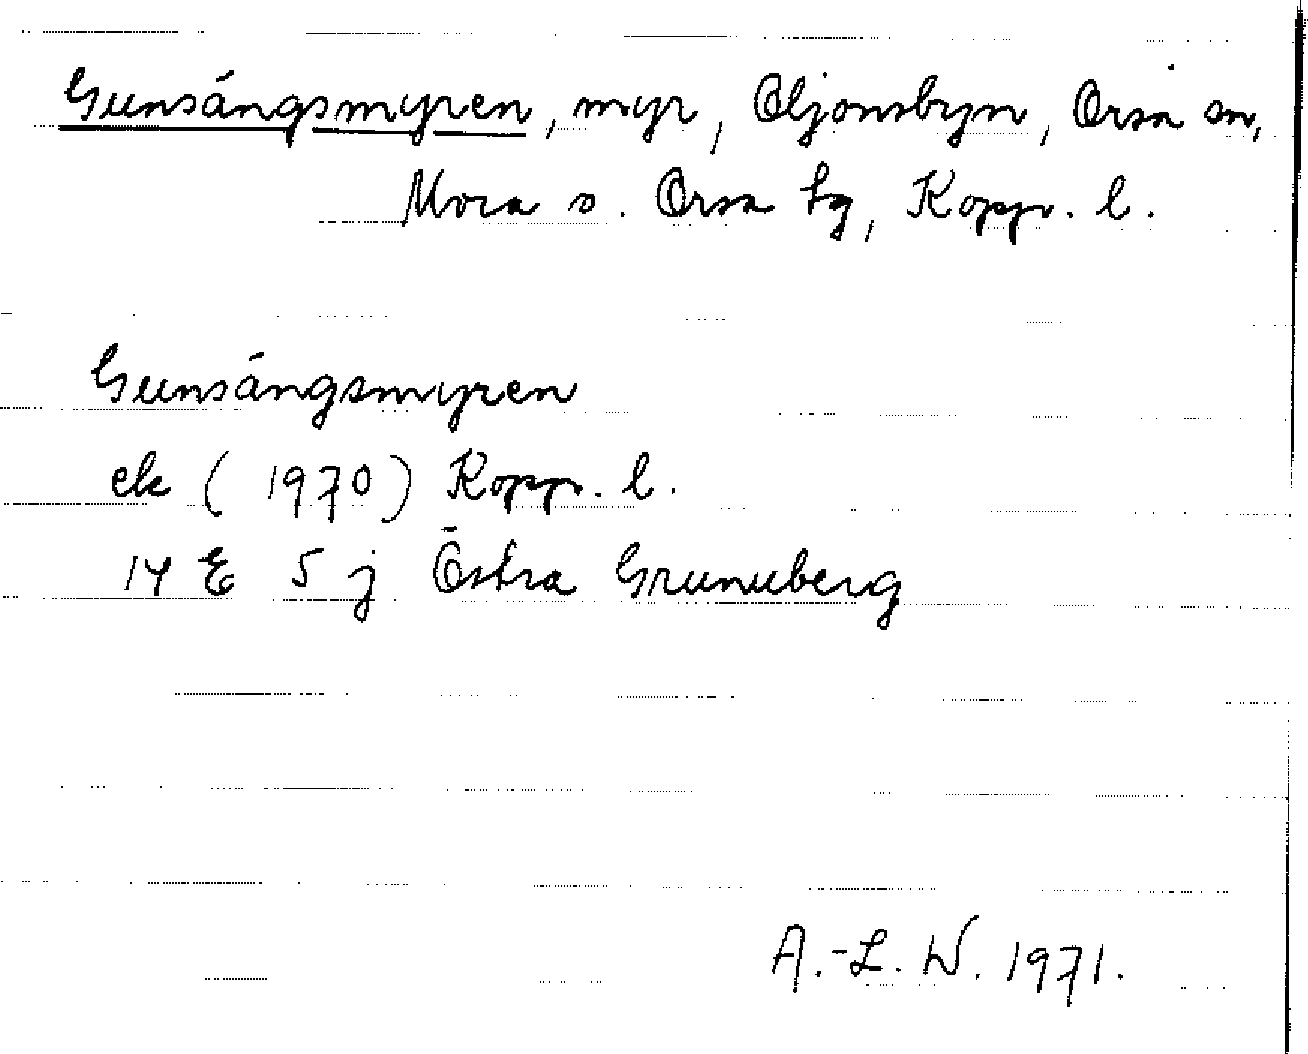 Gunsängsmyren, myr, Oljonsbyn, Orsa sn,
Mora o. Orsa tg, Kopp. l.
Gunsängsmyren
ek (1970) Kopp. l.
14 E 5 j Östra Grunuberg
A.-L. W. 1971.